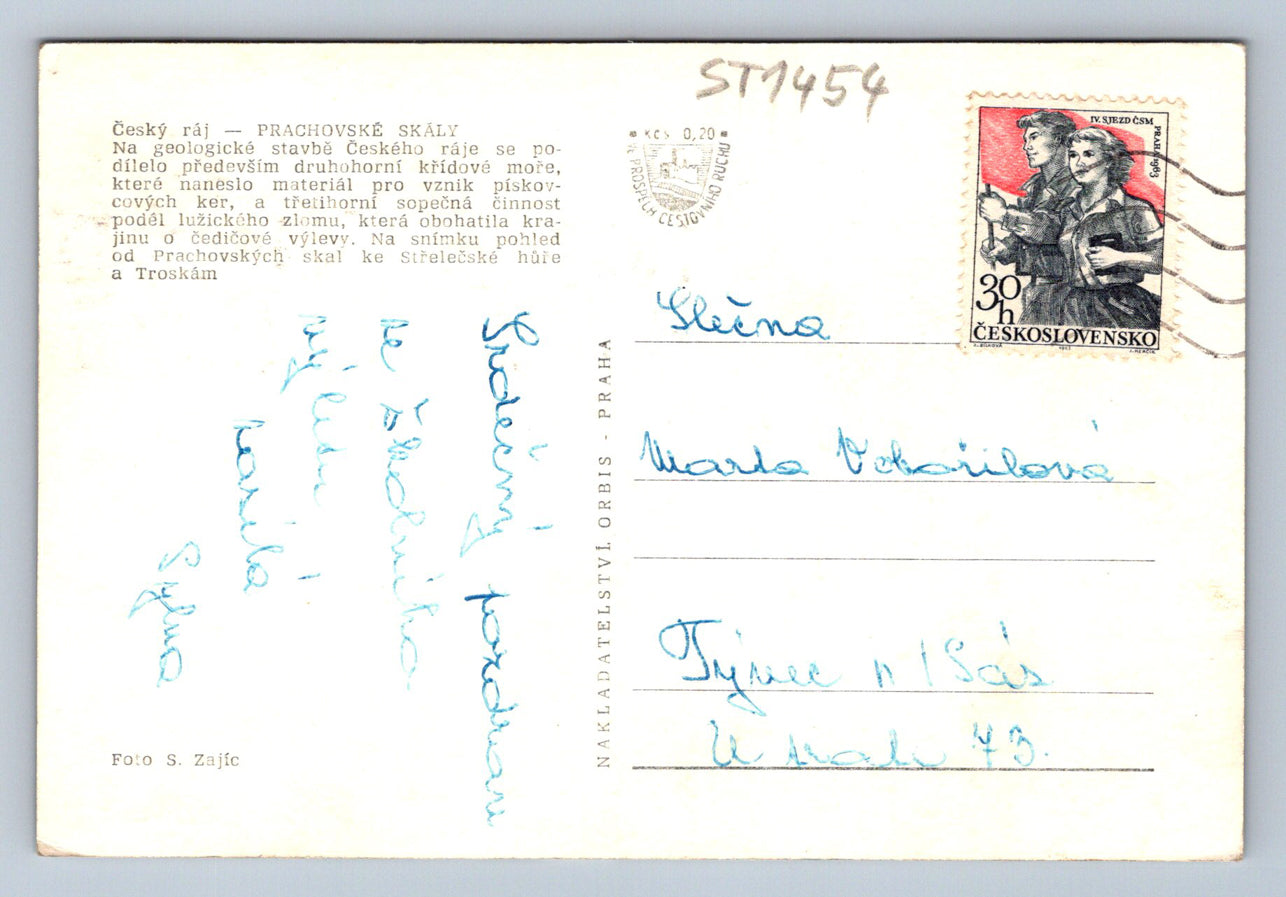 ST1454
Český ráj — PRACHOVSKÉ SKÁLY
Na geologické stavbě Českého ráje se po-
dílelo především druhohorní křídové moře,
které naneslo materiál pro vznik pískov-
cových ker, a třetihorní sopečná činnost
podél lužického zlomu, která obohatila kra-
jinu o čedičové výlevy. Na snímku pohled
od Prachovských skal ke Střelečské hůře
a Troskám
Srdečný pozdrav
ze
výletu
Foto S. Zajíc
NAKLADATELSTVÍ ORBIS - PRAHA
KCS 0,20
VE PROSPĚCH CESTOVNÍHO RUCHU
IV. SJEZD ČSM
PRAHA 1963
30
h
ČESKOSLOVENSKO
Slečna
Marta
Týnec n/Sáz
73.